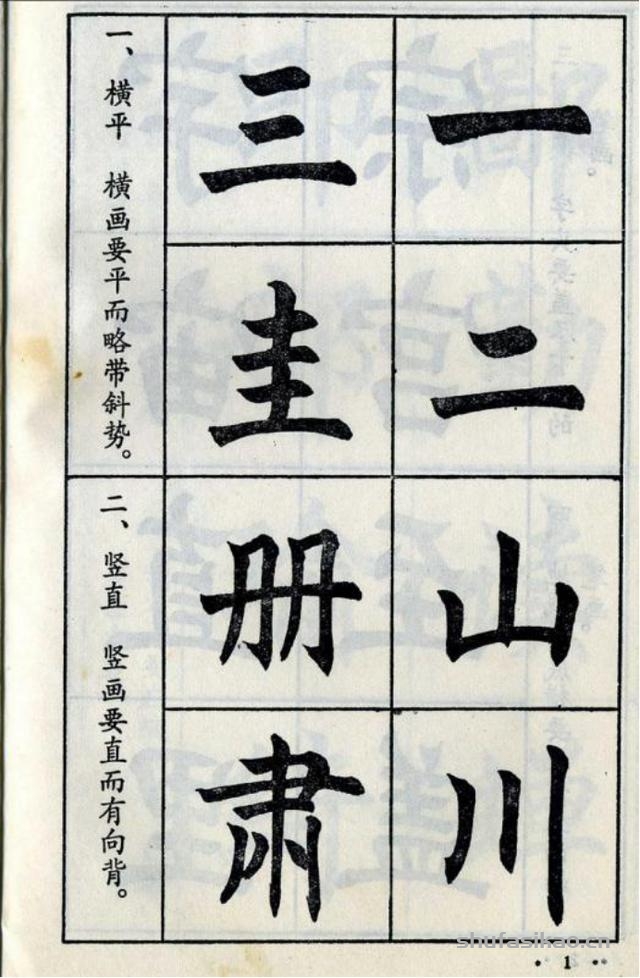 一
二
三
圭
一、横平　横画要平而略带斜势。
山
川
册
肃
二、竖直　竖画要直而有向背。
shufasikao.cn
· 1 ··